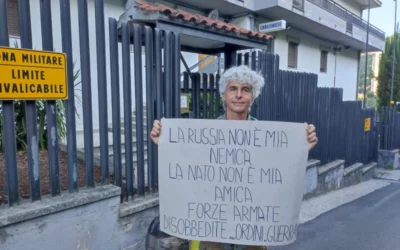 ZONA MILITARE
LIMITE
INVALICABILE
LA RUSSIA NON È MIA
NEMICA
LA NATO NON È MIA
AMICA
FORZE ARMATE
DISOBBEDITE
ORDINI GUERRA